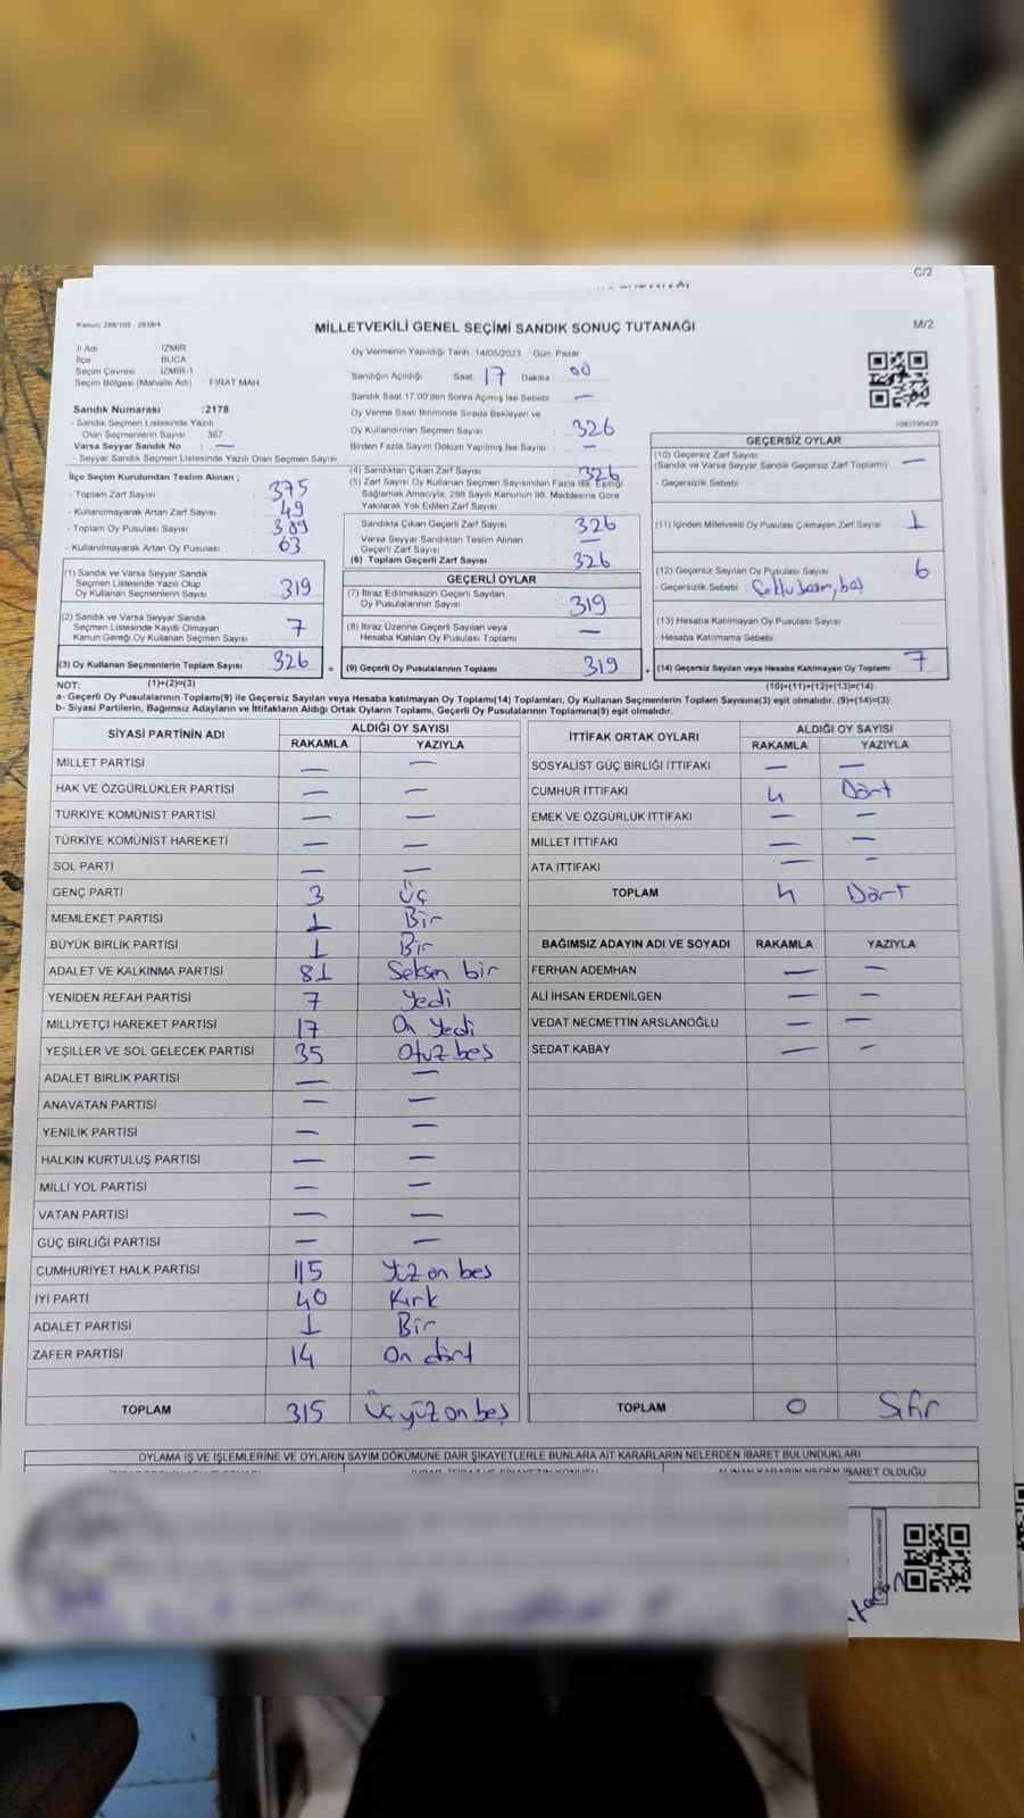 C/2
M/2
MİLLETVEKİLİ GENEL SEÇİMİ SANDIK SONUÇ TUTANAĞI
İl Adı İZMİR
İlçe BUCA
Seçim Çevresi İZMİR-1
Seçim Bölgesi (Mahalle Adı) FIRAT MAH.
Sandık Numarası :2178
- Sandık Seçmen Listesinde Yazılı
Olan Seçmenlerin Sayısı : 367
Varsa Seyyar Sandık No : —
- Seyyar Sandık Seçmen Listesinde Yazılı Olan Seçmen Sayısı
Oy Vermenin Yapıldığı Tarih : 14/05/2023 Gün: Pazar
Sandığın Açıldığı Saat 17 Dakika : 00
Sandık Saat 17:00'den Sonra Açılmış İse Sebebi —
Oy Verme Saati Bitiminde Sırada Bekleyen ve
Oy Kullandırılan Seçmen Sayısı 326
Birden Fazla Sayım Döküm Yapılmış İse Sayısı —
İlçe Seçim Kurulundan Teslim Alınan ;
- Toplam Zarf Sayısı 375
- Kullanılmayarak Artan Zarf Sayısı 49
- Toplam Oy Pusulası Sayısı 389
- Kullanılmayarak Artan Oy Pusulası 63
(1) Sandık ve Varsa Seyyar Sandık
Seçmen Listesinde Yazılı Olup
Oy Kullanan Seçmenlerin Sayısı 319
(2) Sandık ve Varsa Seyyar Sandık
Seçmen Listesinde Kayıtlı Olmayan
Kanun Gereği Oy Kullanan Seçmen Sayısı 7
(3) Oy Kullanan Seçmenlerin Toplam Sayısı 326 =
(4) Sandıktan Çıkan Zarf Sayısı 326
(5) Zarf Sayısı Oy Kullanan Seçmen Sayısından Fazla İse, Eşitliği
Sağlamak Amacıyla, 298 Sayılı Kanunun 98. Maddesine Göre
Yakılarak Yok Edilen Zarf Sayısı
Sandıkta Çıkan Geçerli Zarf Sayısı 326
Varsa Seyyar Sandıktan Teslim Alınan
Geçerli Zarf Sayısı —
(6) Toplam Geçerli Zarf Sayısı 326
GEÇERLİ OYLAR
(7) İtiraz Edilmeksizin Geçerli Sayılan
Oy Pusulalarının Sayısı 319
(8) İtiraz Üzerine Geçerli Sayılan veya
Hesaba Katılan Oy Pusulası Toplamı —
(9) Geçerli Oy Pusulalarının Toplamı 319 +
GEÇERSİZ OYLAR
(10) Geçersiz Zarf Sayısı
(Sandık ve Varsa Seyyar Sandık Geçersiz Zarf Toplamı) —
- Geçersizlik Sebebi
(11) İçinden Milletvekili Oy Pusulası Çıkmayan Zarf Sayısı 1
(12) Geçersiz Sayılan Oy Pusulası Sayısı 6
- Geçersizlik Sebebi :
(13) Hesaba Katılmayan Oy Pusulası Sayısı
- Hesaba Katılmama Sebebi
(14) Geçersiz Sayılan veya Hesaba Katılmayan Oy Toplamı 7
NOT: (1)+(2)=(3) (10)+(11)+(12)+(13)=(14)
a- Geçerli Oy Pusulalarının Toplamı(9) ile Geçersiz Sayılan veya Hesaba katılmayan Oy Toplamı(14) Toplamları, Oy Kullanan Seçmenlerin Toplam Sayısına(3) eşit olmalıdır. (9)+(14)=(3)
b- Siyasi Partilerin, Bağımsız Adayların ve İttifakların Aldığı Ortak Oyların Toplamı, Geçerli Oy Pusulalarının Toplamına(9) eşit olmalıdır.
SİYASİ PARTİNİN ADI ALDIĞI OY SAYISI
RAKAMLA YAZIYLA
MİLLET PARTİSİ — —
HAK VE ÖZGÜRLÜKLER PARTİSİ — —
TÜRKİYE KOMÜNİST PARTİSİ — —
TÜRKİYE KOMÜNİST HAREKETİ — —
SOL PARTİ — —
GENÇ PARTİ 3 Üç
MEMLEKET PARTİSİ 1 Bir
BÜYÜK BİRLİK PARTİSİ 1 Bir
ADALET VE KALKINMA PARTİSİ 81 Seksen bir
YENİDEN REFAH PARTİSİ 7 Yedi
MİLLİYETÇİ HAREKET PARTİSİ 17 On yedi
YEŞİLLER VE SOL GELECEK PARTİSİ 35 Otuz beş
ADALET BİRLİK PARTİSİ — —
ANAVATAN PARTİSİ — —
YENİLİK PARTİSİ — —
HALKIN KURTULUŞ PARTİSİ — —
MİLLİ YOL PARTİSİ — —
VATAN PARTİSİ — —
GÜÇ BİRLİĞİ PARTİSİ — —
CUMHURİYET HALK PARTİSİ 115 Yüz on beş
İYİ PARTİ 40 Kırk
ADALET PARTİSİ 1 Bir
ZAFER PARTİSİ 14 On dört
TOPLAM 315 Üç yüz on beş
İTTİFAK ORTAK OYLARI ALDIĞI OY SAYISI
RAKAMLA YAZIYLA
SOSYALİST GÜÇ BİRLİĞİ İTTİFAKI — —
CUMHUR İTTİFAKI 4 Dört
EMEK VE ÖZGÜRLÜK İTTİFAKI — —
MİLLET İTTİFAKI — —
ATA İTTİFAKI — —
TOPLAM 4 Dört
BAĞIMSIZ ADAYIN ADI VE SOYADI RAKAMLA YAZIYLA
FERHAN ADEMHAN — —
ALİ İHSAN ERDENİLGEN — —
VEDAT NECMETTİN ARSLANOĞLU — —
SEDAT KABAY — —
TOPLAM 0 Sıfır
OYLAMA İŞ VE İŞLEMLERİNE VE OYLARIN SAYIM DÖKÜMÜNE DAİR ŞİKAYETLERLE BUNLARA AİT KARARLARIN NELERDEN İBARET BULUNDUKLARI